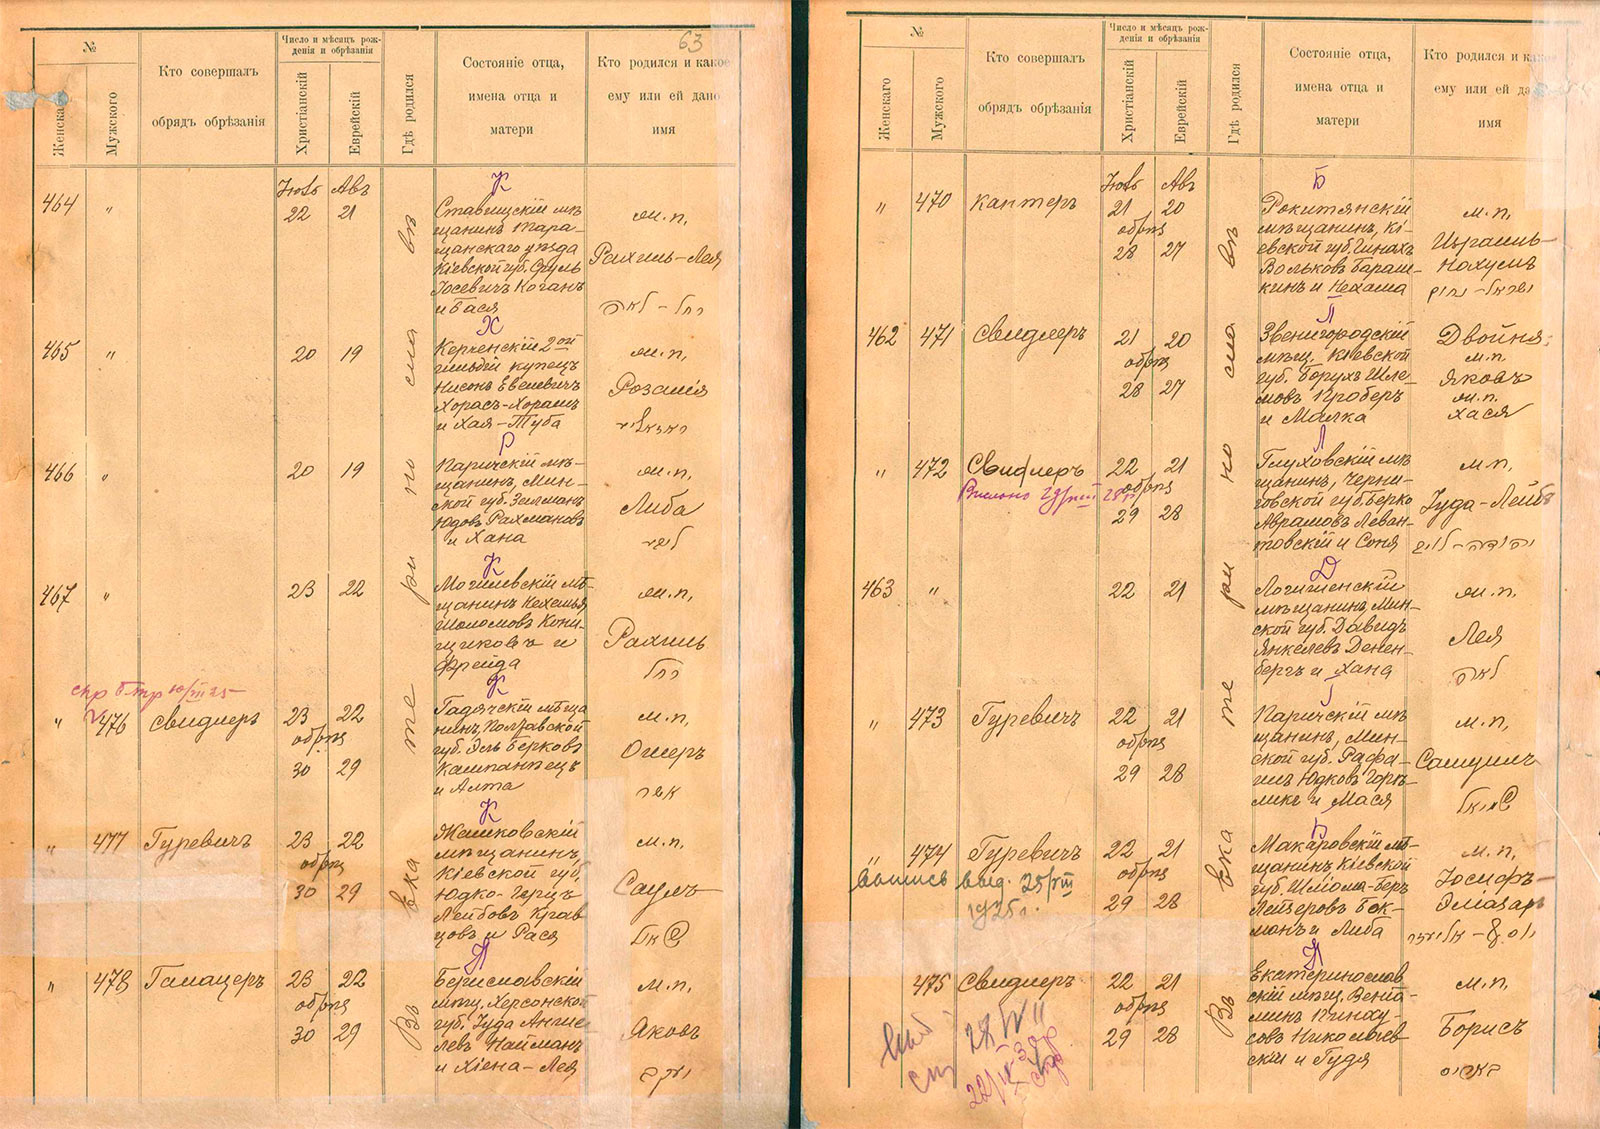 63
№
Женскаго
Мужского
Кто совершалъ
обрядъ обрѣзанія
Число и мѣсяцъ рож-
денія и обрѣзанія
Христіанскій
Еврейскій
Гдѣ родился
Состояніе отца,
имена отца и
матери
Кто родился и какое
ему или ей дано
имя
464 " 22 21
Іюль Авъ
К
Ставищскій мѣ-
щанинъ Тара-
щанскаго уѣзда
Кіевской губ. Сруль
Іосевичъ Коганъ
и Бася
ж.п.
Рахиль-Лея
רחל - לאה
465 " 20 19
Х
Керченскій 2ой
гильдіи купецъ
Нисонъ Евелевичъ
Хорасъ-Хорошъ
и Хая-Туба
ж.п.
Розалія
466 " 20 19
Р
Паричскій мѣ-
щанинъ, Мин-
ской губ. Зелманъ
Юдовъ Рахмановъ
и Хана
ж.п.
Либа
467 " 23 22
К
Могилевскій мѣ-
щанинъ Нехемья
Шоломовъ Кони-
щиковъ и
Фрейда
ж.п.
Рахиль
רחל
" 476 Свидлеръ 23 22
обрѣз
30 29
К
Гадячскій мѣща
нинъ, Полтавской
губ. Эль Берковъ
Кампанѣецъ
и Алта
м.п.
Ошеръ
אשר
" 477 Гуревичъ 23 22
обрѣз
30 29
К
Жашковскій
мѣщанинъ,
Кіевской губ,
Юдко-Герцъ
Лейбовъ Крав
цовъ и Рася
м.п.
Саулъ
שאל
" 478 Галацеръ 23 22
обрѣз
30 29
Н
Бериславскій
мѣщ. Херсонской
губ. Іуда Анше
левъ Найманъ
и Хіена-Лея
м.п.
Яковъ
יעקב
Въ Екатеринославѣ
№
Женскаго
Мужского
Кто совершалъ
обрядъ обрѣзанія
Число и мѣсяцъ рож-
денія и обрѣзанія
Христіанскій
Еврейскій
Гдѣ родился
Состояніе отца,
имена отца и
матери
Кто родился и какое
ему или ей дано
имя
Іюль Авъ
" 470 Кантеръ 21 20
обрѣз
28 27
Б
Рокитянскій
мѣщанинъ, Кі-
евской губ.
Вольковъ Бараш-
кинъ и Нехама
м.п.
Израиль-
Нахумъ
ישראל - נחום
462 471 Свидлеръ 21 20
обрѣз
28 27
П
Звенигородскій
мѣщ. Кіевской
губ. Борухъ Шле-
мовъ Проберъ
и Малка
Двойня:
м.п.
Яковъ
ж.п.
Хася
" 472 Свидлеръ 22 21
обрѣз
29 28
Л
Глуховскій мѣ
щанинъ, Черни-
говской губ. Берко
Аврамовъ Леван-
товскій и Соня
м.п.
Іуда-Лейбъ
יהודה - לייב
463 " 22 21
Д
Логишенскій
мѣщанинъ, Мин-
ской губ. Давидъ
Янкелевъ Денен-
бергъ и Хана
ж.п.
Лея
לאה
" 473 Гуревичъ 22 21
обрѣз
29 28
Г
Паричскій мѣ
щанинъ, Мин-
ской губ. Рафа-
илъ Юдковъ Горѣ-
ликъ и Мася
м.п.
Самуилъ
שמואל
" 474 Гуревичъ 22 21
обрѣз
29 28
выпись выд. 25/VIII
1925г.
Б
Макаровскій мѣ-
щанинъ, Кіевской
губ. Шліома-Беръ
Лейзеровъ Бок-
манъ и Либа
м.п.
Іосифъ-
Эліазаръ
יוסף - אליעזר
475 Свидлеръ 22 21
обрѣз
29 28
Н
Екатеринослав
скій мѣщ. Веніа-
минъ Пинху-
совъ Николаев-
скій и Гудя
м.п.
Борисъ
Въ Екатеринославѣ